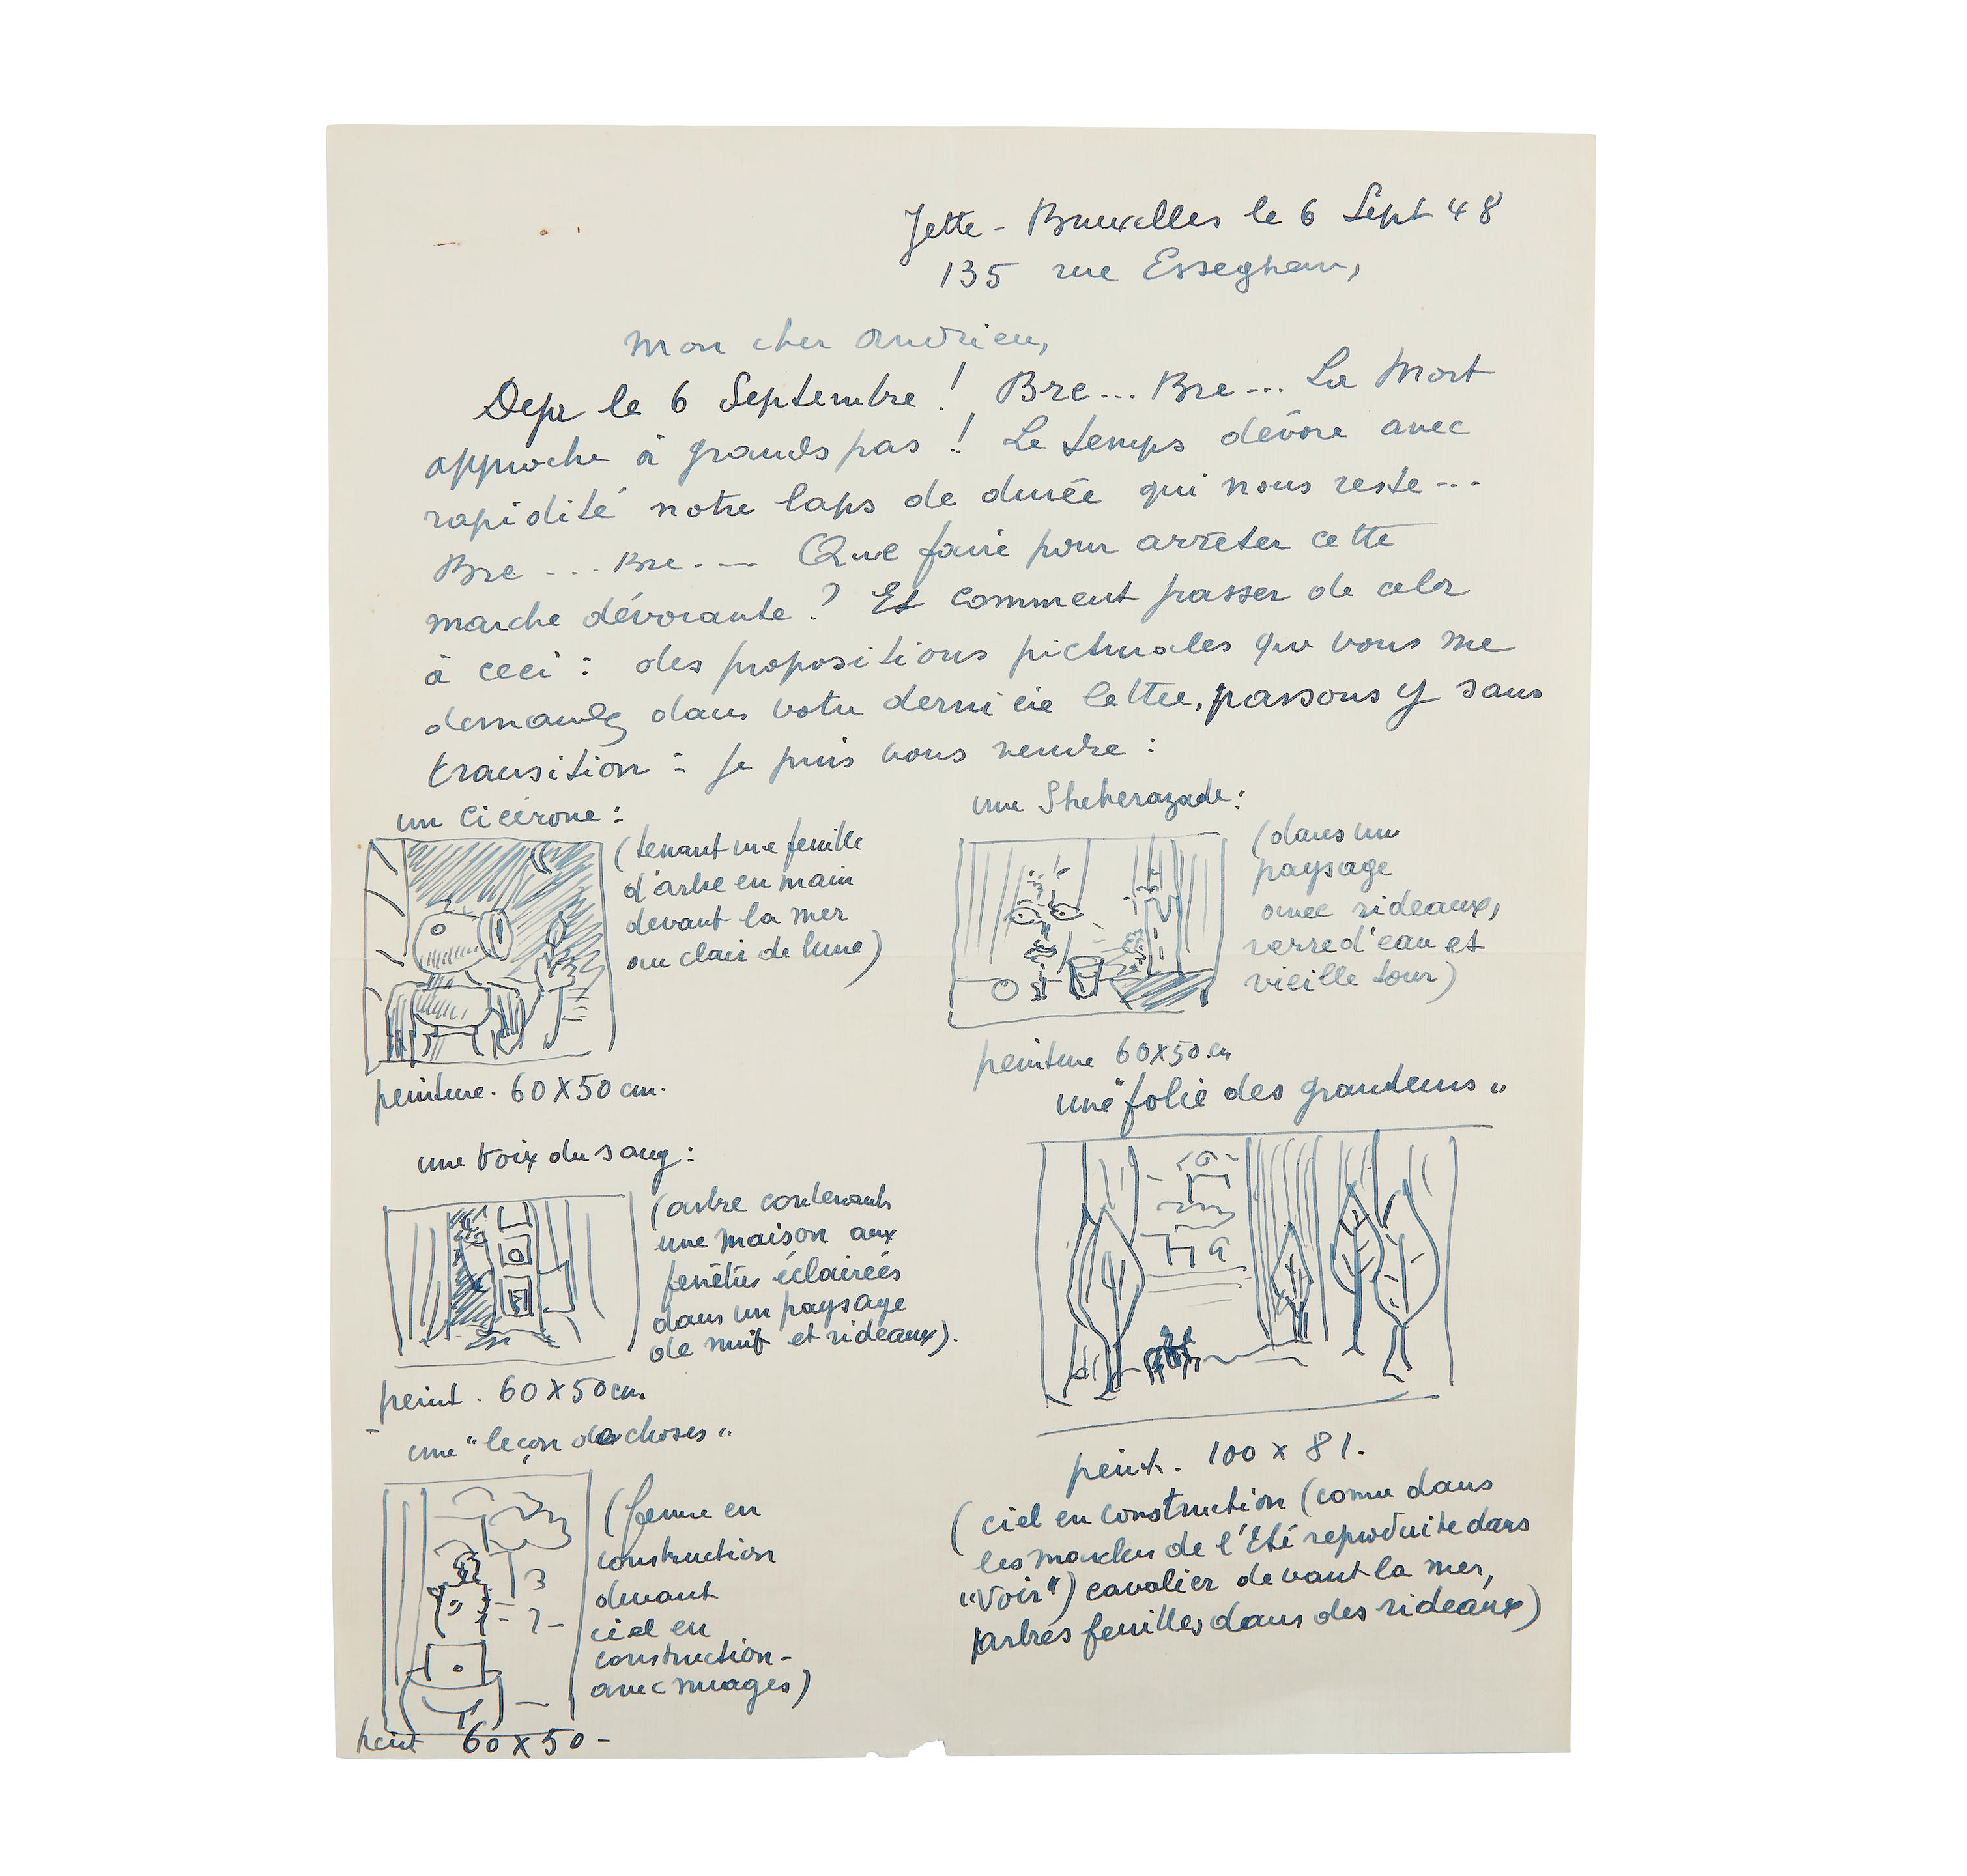 Jette - Bruxelles le 6 Sept 48
135 rue Esseghem,
Mon cher Andrieu,
Deja le 6 Septembre ! Bre... Bre... La Mort
approche à grands pas ! Le temps dévore avec
rapidité notre laps de durée qui nous reste ...
Bre ... Bre ... Que faire pour arrêter cette
marche dévorante ? Et comment passer de cela
à ceci : des propositions picturales que vous me
demandez dans votre dernière lettre, passons y sans
transition : je puis vous vendre :
un Cicérone :
(tenant une feuille
d'arbre en main
devant la mer
au clair de lune)
peinture. 60 X 50 cm.
une Sheherazade :
(dans un
paysage
avec rideaux,
verre d'eau et
vieille tour)
peinture 60X50 cm
une voix du sang :
(arbre contenant
une maison aux
fenêtres éclairées
dans un paysage
de nuit et rideaux).
peint. 60 X 50 cm.
une "folie des grandeurs"
peint. 100 x 81.
(ciel en construction (comme dans
les marches de l'Eté reproduite dans
"Voir") cavalier devant la mer,
arbres feuilles dans des rideaux)
une "leçon des choses"
(femme en
construction
devant
ciel en
construction -
avec nuages)
peint 60 X 50 -